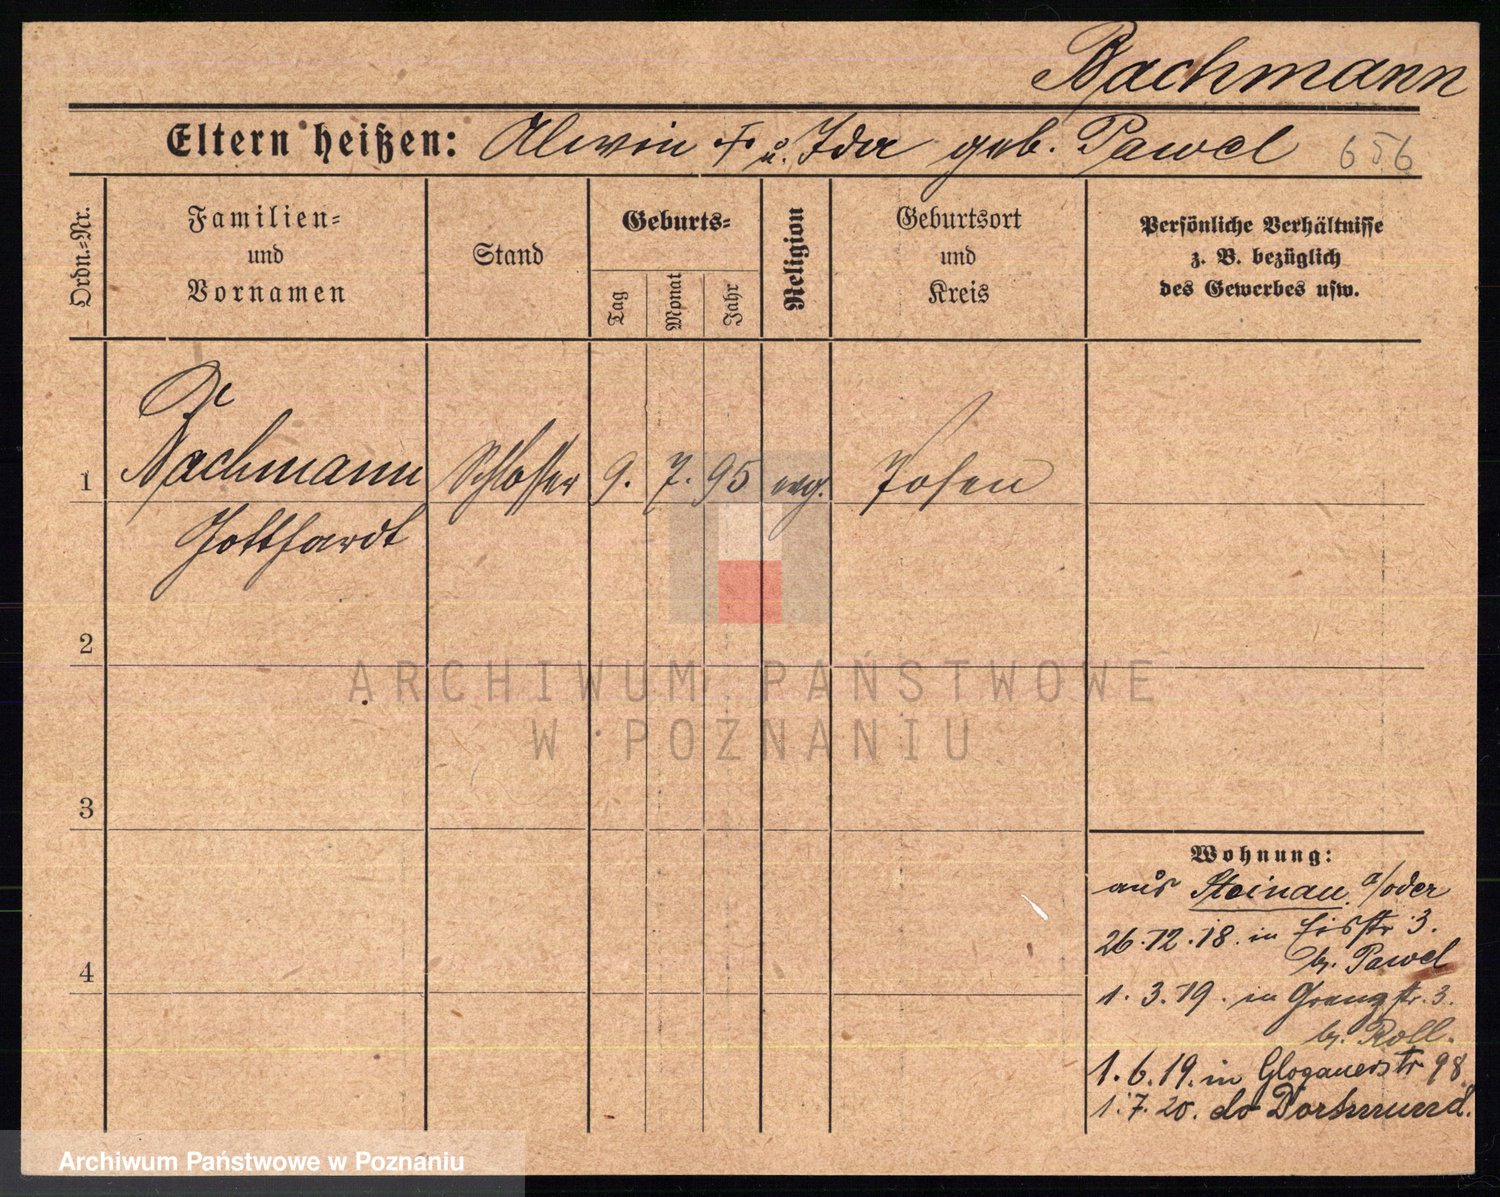 Bachmann
Eltern heißen: Alwin † u. Ida geb. Pawel 656
Ordn.=Nr.
Familien=
und
Vornamen
Stand
Geburts=
Tag
Monat
Jahr
Religion
Geburtsort
und
Kreis
Persönliche Verhältnisse
z. B. bezüglich
des Gewerbes usw.
1
Bachmann
Gotthardt
Schlosser
9. 7. 95
evg.
Posen
2
3
4
Wohnung:
aus Steinau a/oder
26.12.18. in Eisstr 3.
b. Pawel
1. 3. 19. in Grenzstr. 3.
b. Roll.
1.6.19. in Glogauerstr 98
1.7.20. do Dortmund.
ARCHIWUM PAŃSTWOWE
W POZNANIU
Archiwum Państwowe w Poznaniu